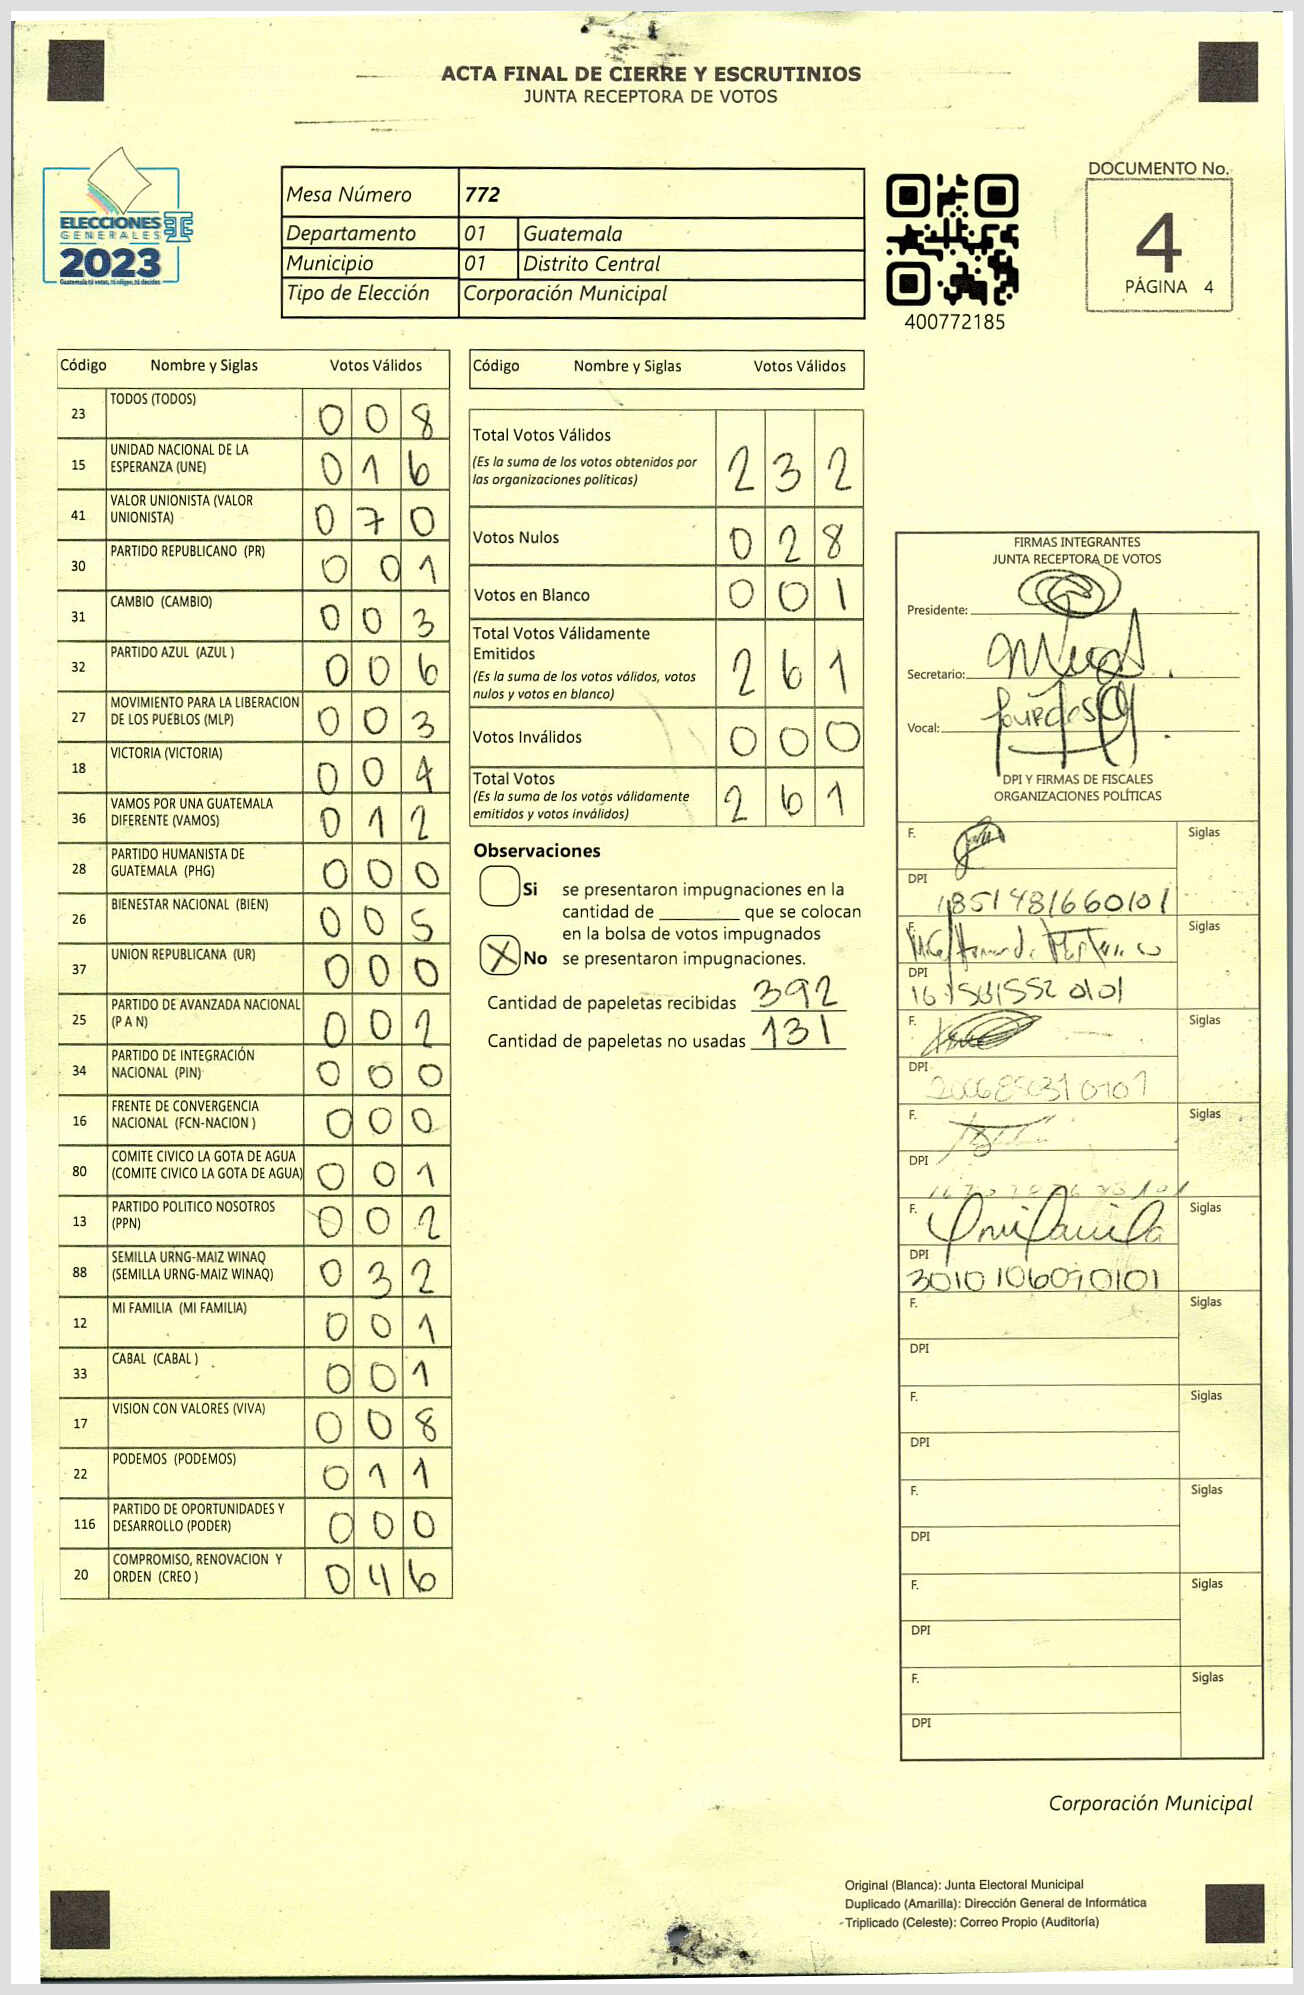 ACTA FINAL DE CIERRE Y ESCRUTINIOS
JUNTA RECEPTORA DE VOTOS
ELECCIONES
GENERALES
2023
Mesa Número 772
Departamento 01 Guatemala
Municipio 01 Distrito Central
Tipo de Elección Corporación Municipal
400772185
DOCUMENTO No.
4
PÁGINA 4
Código Nombre y Siglas Votos Válidos
23 TODOS (TODOS) 0 0 8
15 UNIDAD NACIONAL DE LA
ESPERANZA (UNE) 0 1 6
41 VALOR UNIONISTA (VALOR
UNIONISTA) 0 7 0
30 PARTIDO REPUBLICANO (PR) 0 0 1
31 CAMBIO (CAMBIO) 0 0 3
32 PARTIDO AZUL (AZUL ) 0 0 6
27 MOVIMIENTO PARA LA LIBERACION
DE LOS PUEBLOS (MLP) 0 0 3
18 VICTORIA (VICTORIA) 0 0 4
36 VAMOS POR UNA GUATEMALA
DIFERENTE (VAMOS) 0 1 2
28 PARTIDO HUMANISTA DE
GUATEMALA (PHG) 0 0 0
26 BIENESTAR NACIONAL (BIEN) 0 0 5
37 UNION REPUBLICANA (UR) 0 0 0
25 PARTIDO DE AVANZADA NACIONAL
(P A N) 0 0 2
34 PARTIDO DE INTEGRACIÓN
NACIONAL (PIN) 0 0 0
16 FRENTE DE CONVERGENCIA
NACIONAL (FCN-NACION ) 0 0 0
80 COMITE CIVICO LA GOTA DE AGUA
(COMITE CIVICO LA GOTA DE AGUA) 0 0 1
13 PARTIDO POLITICO NOSOTROS
(PPN) 0 0 2
88 SEMILLA URNG-MAIZ WINAQ
(SEMILLA URNG-MAIZ WINAQ) 0 3 2
12 MI FAMILIA (MI FAMILIA) 0 0 1
33 CABAL (CABAL ) 0 0 1
17 VISION CON VALORES (VIVA) 0 0 8
22 PODEMOS (PODEMOS) 0 1 1
116 PARTIDO DE OPORTUNIDADES Y
DESARROLLO (PODER) 0 0 0
20 COMPROMISO, RENOVACION Y
ORDEN (CREO ) 0 4 6
Código Nombre y Siglas Votos Válidos
Total Votos Válidos
(Es la suma de los votos obtenidos por
las organizaciones políticas) 2 3 2
Votos Nulos 0 2 8
Votos en Blanco 0 0 1
Total Votos Válidamente
Emitidos
(Es la suma de los votos válidos, votos
nulos y votos en blanco) 2 6 1
Votos Inválidos 0 0 0
Total Votos
(Es la suma de los votos válidamente
emitidos y votos inválidos) 2 6 1
Observaciones
Si se presentaron impugnaciones en la
cantidad de ________ que se colocan
en la bolsa de votos impugnados
X No se presentaron impugnaciones.
Cantidad de papeletas recibidas 392
Cantidad de papeletas no usadas 131
FIRMAS INTEGRANTES
JUNTA RECEPTORA DE VOTOS
Presidente:
Secretario:
Vocal:
DPI Y FIRMAS DE FISCALES
ORGANIZACIONES POLÍTICAS
F. Siglas
DPI
1851481660101
F. Siglas
DPI
F. Siglas
DPI
F. Siglas
DPI
F. Siglas
DPI
3010106090101
F. Siglas
DPI
F. Siglas
DPI
F. Siglas
DPI
F. Siglas
DPI
F. Siglas
DPI
Corporación Municipal
Original (Blanca): Junta Electoral Municipal
Duplicado (Amarilla): Dirección General de Informática
Triplicado (Celeste): Correo Propio (Auditoría)